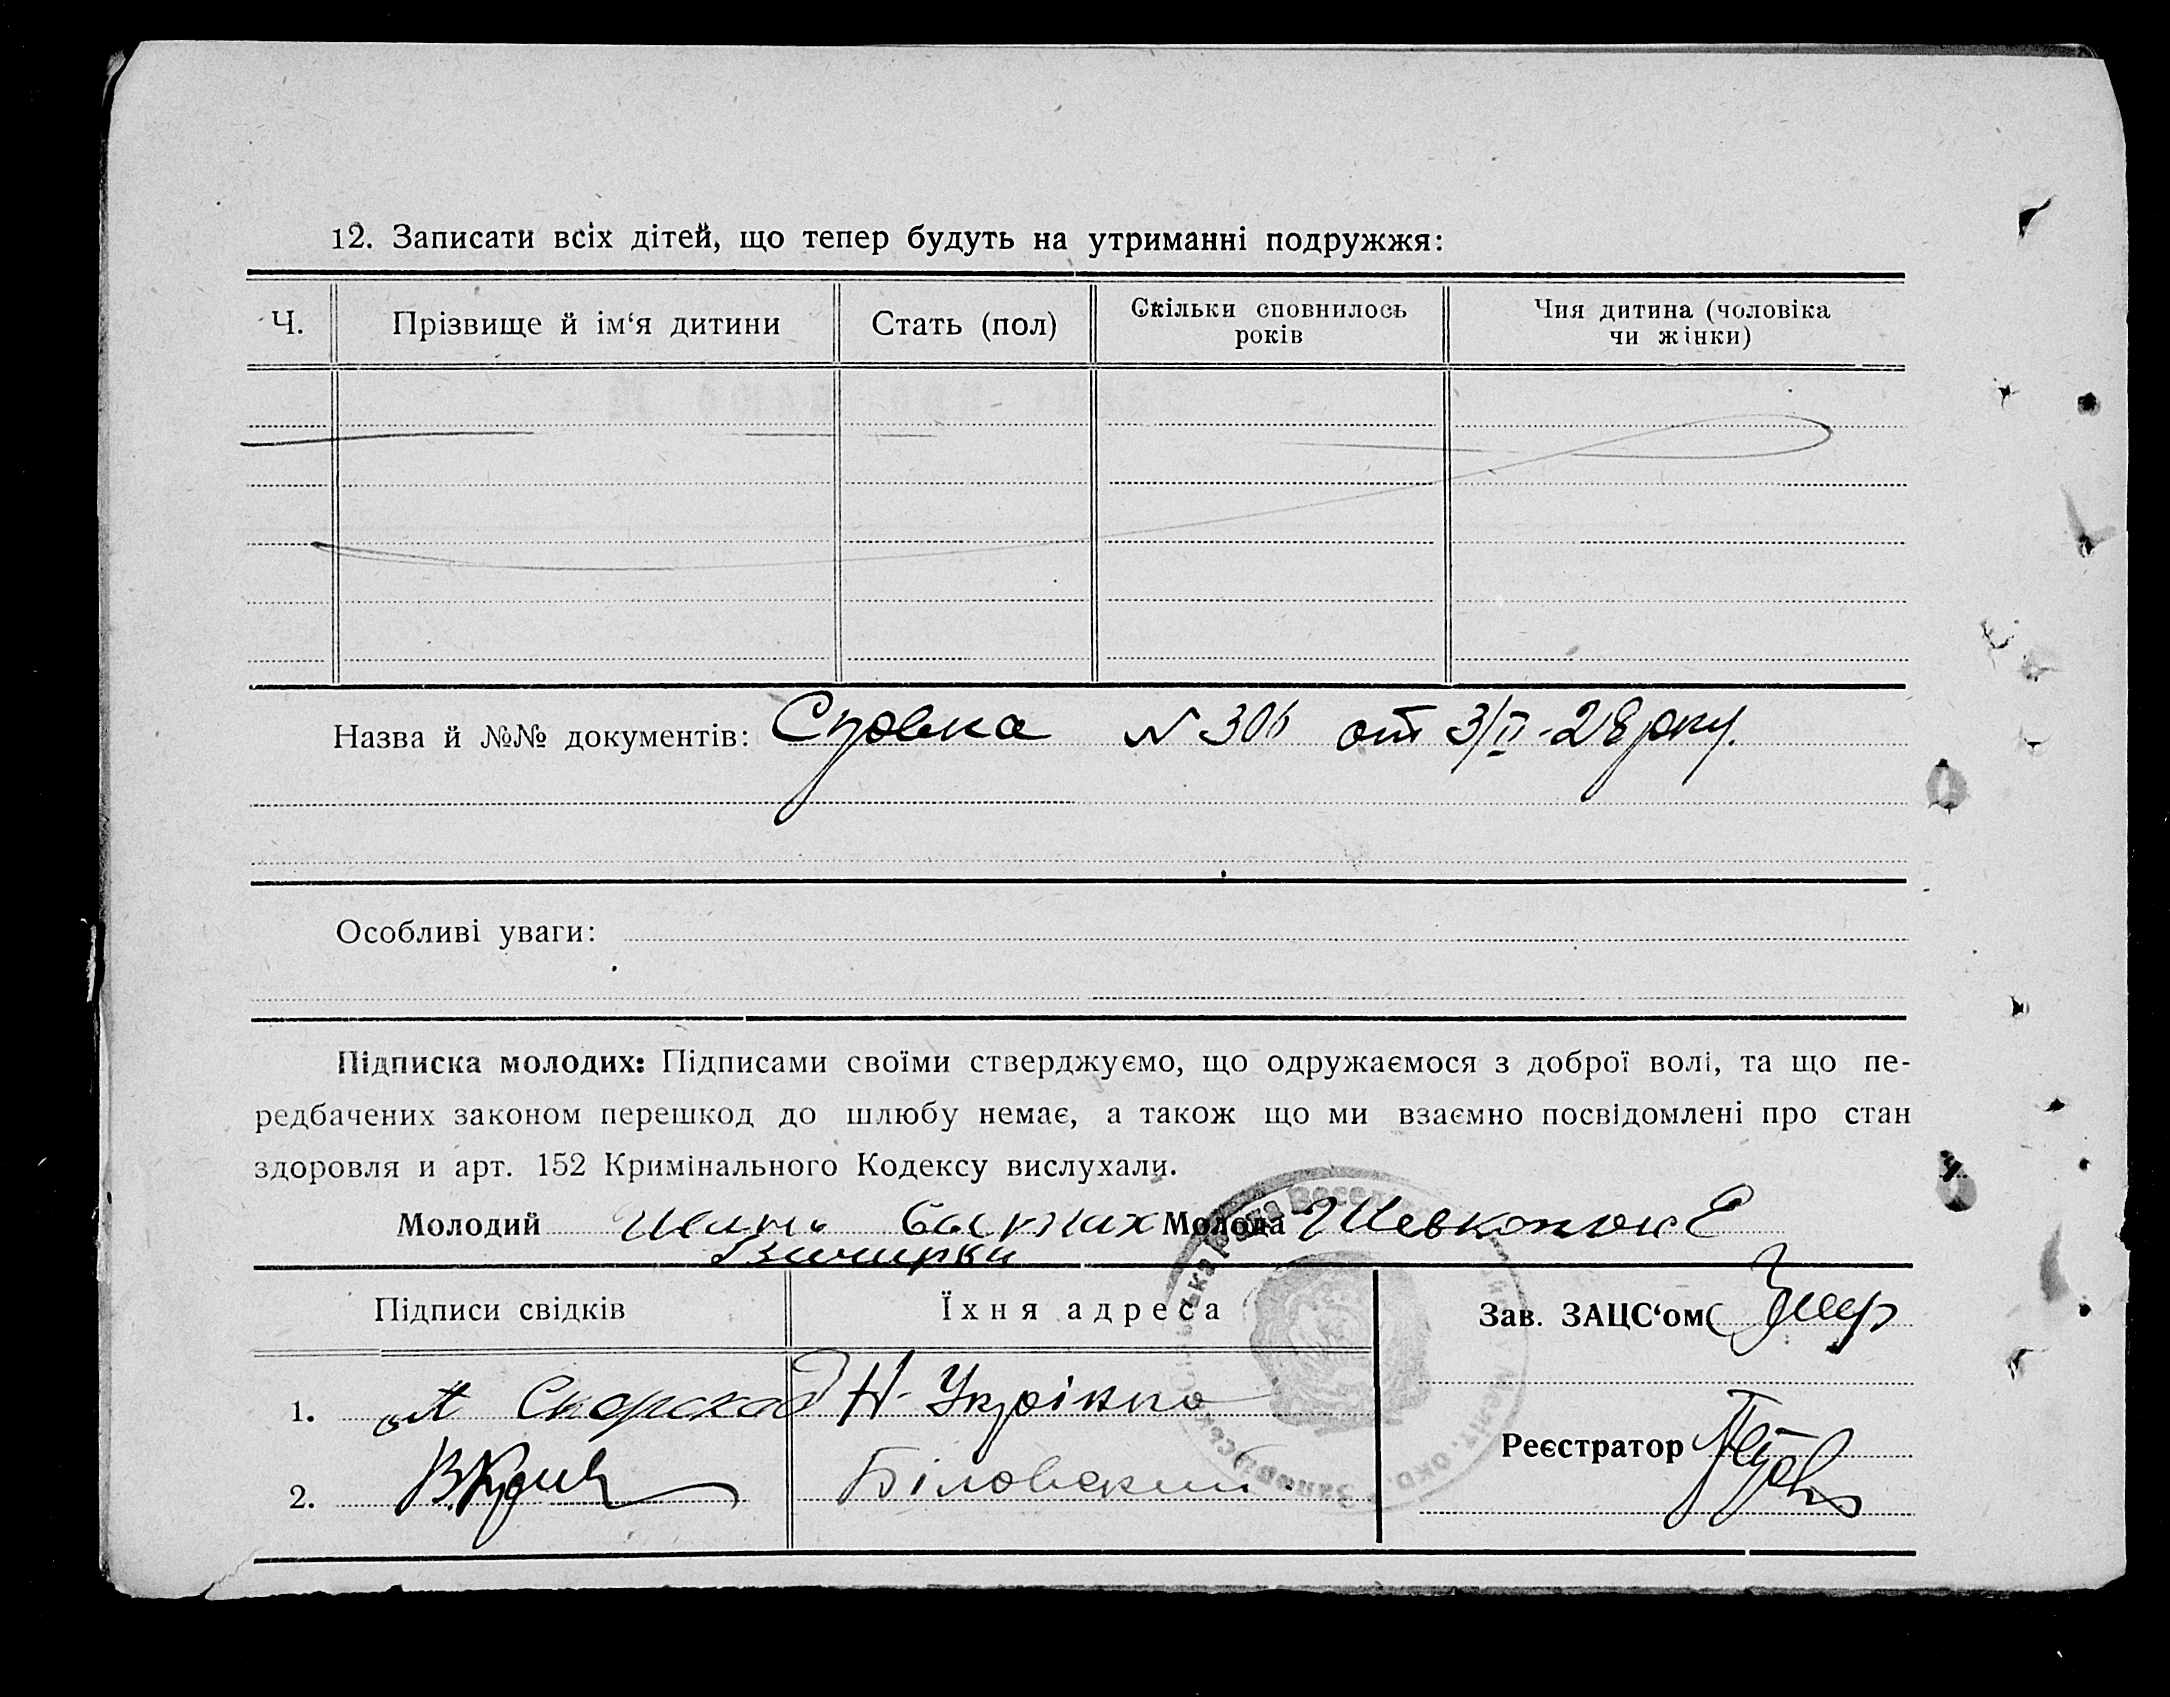 12. Записати всіх дітей, що тепер будуть на утриманні подружжя:
Ч. Прізвище й ім‘я дитини Стать (пол) Скільки сповнилось років Чия дитина (чоловіка чи жінки)
Назва й №№ документів: Справка N 306 от 3/II-28 року.
Особливі уваги:
Підписка молодих: Підписами своїми стверджуємо, що одружаємося з доброї волі, та що пе-
редбачених законом перешкод до шлюбу немає, а також що ми взаємно посвідомлені про стан
здоровля и арт. 152 Кримінального Кодексу вислухали.
Молодий Молода Шевкопляс Е
Підписи свідків Їхня адреса Зав. ЗАЦС‘ом
1. Н-Українка
2. Біловський
Реєстратор